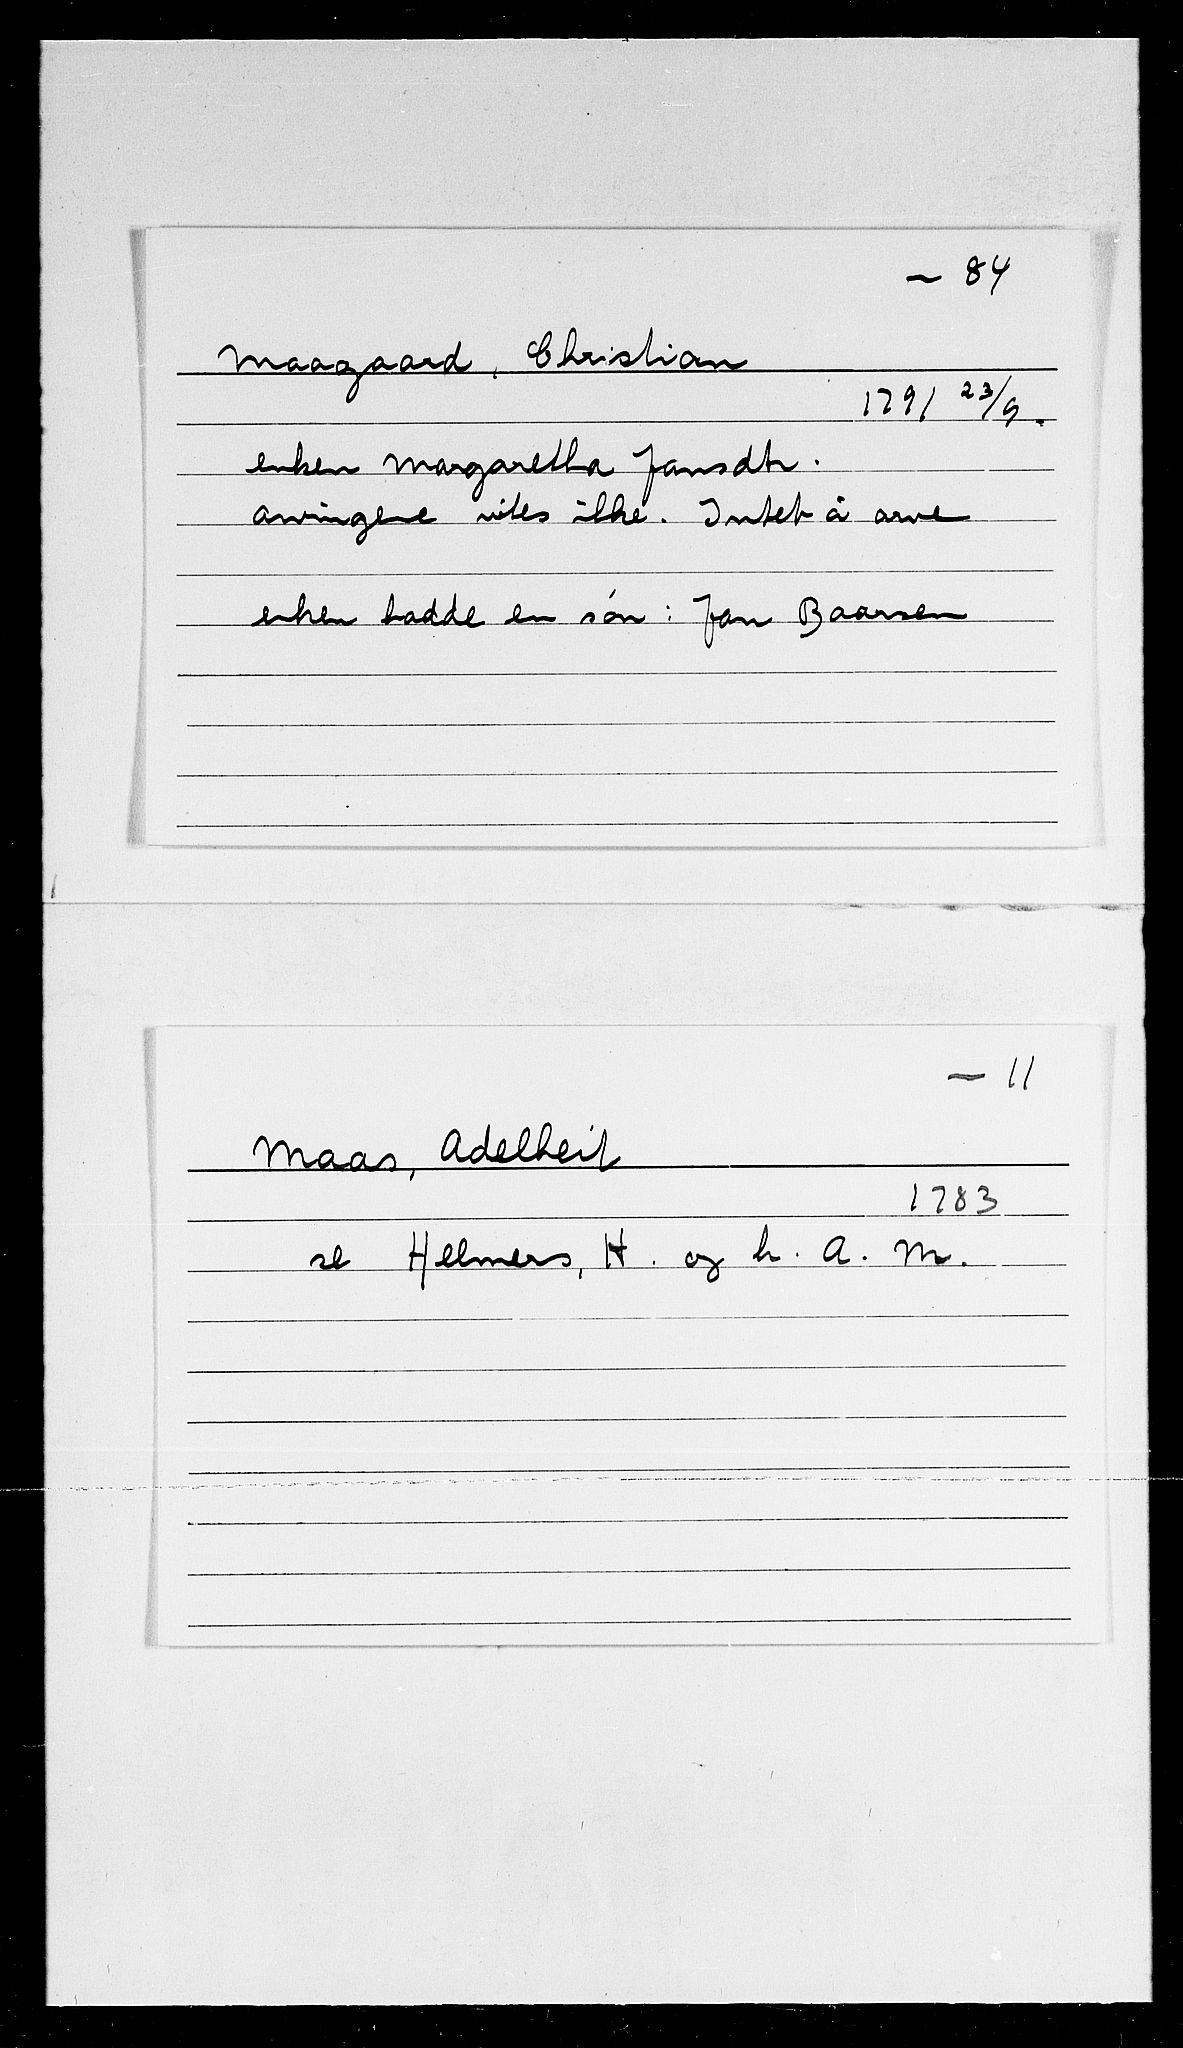 ~ 84
Maagaard, Christian
1791 23/9.
enken Margaretha Jansdtr.
arvingene vites ikke. Intet å arve
enken hadde en sön: Jan Baarsen
~ 11
Maas, Adelheit
1783
se Helmers, H. og h. A. M.